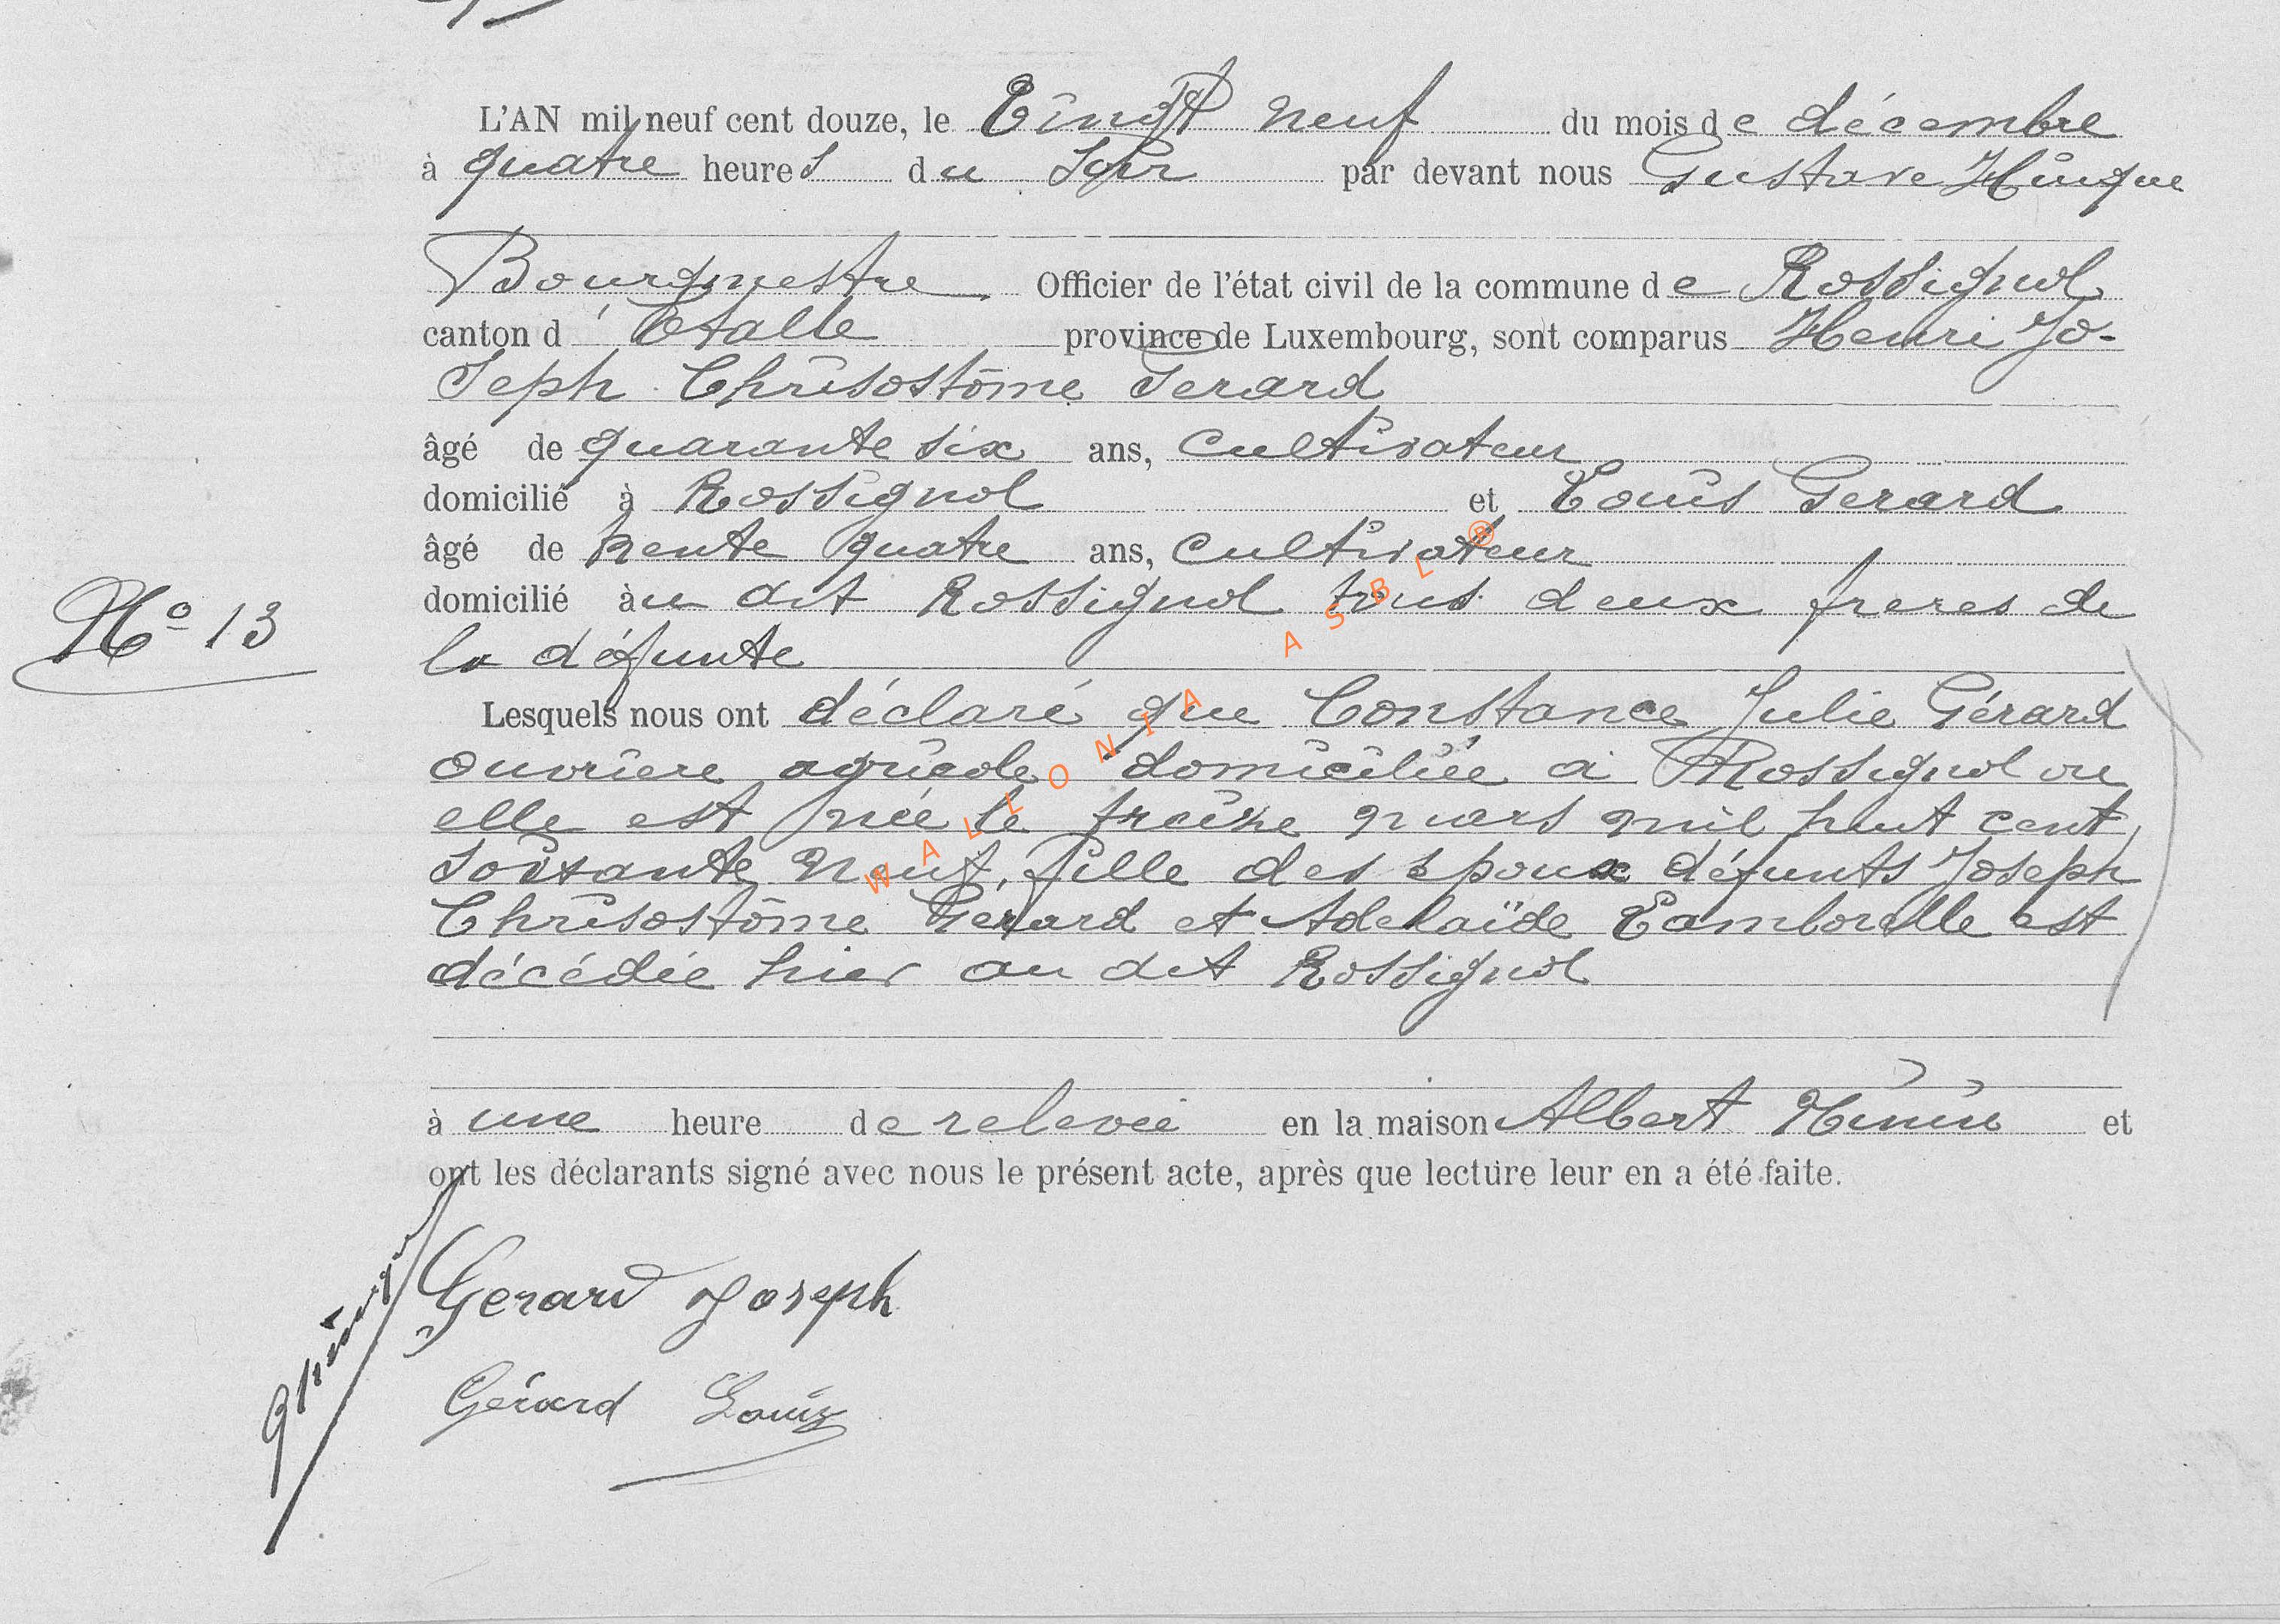 L'AN mil neuf cent douze, le Vingt neuf du mois de décembre
à quatre heures du soir par devant nous Gustave Hurieque
Bourgmestre Officier de l'état civil de la commune de Rossignol
canton d'Etalle province de Luxembourg, sont comparus Henri Jo-
seph Chrisostôme Gerard
âgé de quarante six ans, cultivateur
domicilié à Rossignol et Louis Gerard
âgé de trente quatre ans, cultivateur
domicilié àu dit Rossignol tous deux freres de
la défunte
N° 13
Lesquels nous ont déclaré que Constance Julie Gérard
ouvriere agricole domiciliée à Rossignol ou
elle est née le treize mars mil huit cent
soixante neuf, fille des epoux défunts Joseph
Chrisostôme Gerard et Adelaïde Lamborelle est
décédée hier au dit Rossignol
à une heure de relevée en la maison Albert et
ont les déclarants signé avec nous le présent acte, après que lecture leur en a été faite.
Gerard Joseph
Gérard Louis
WALLONIA ASBL ®